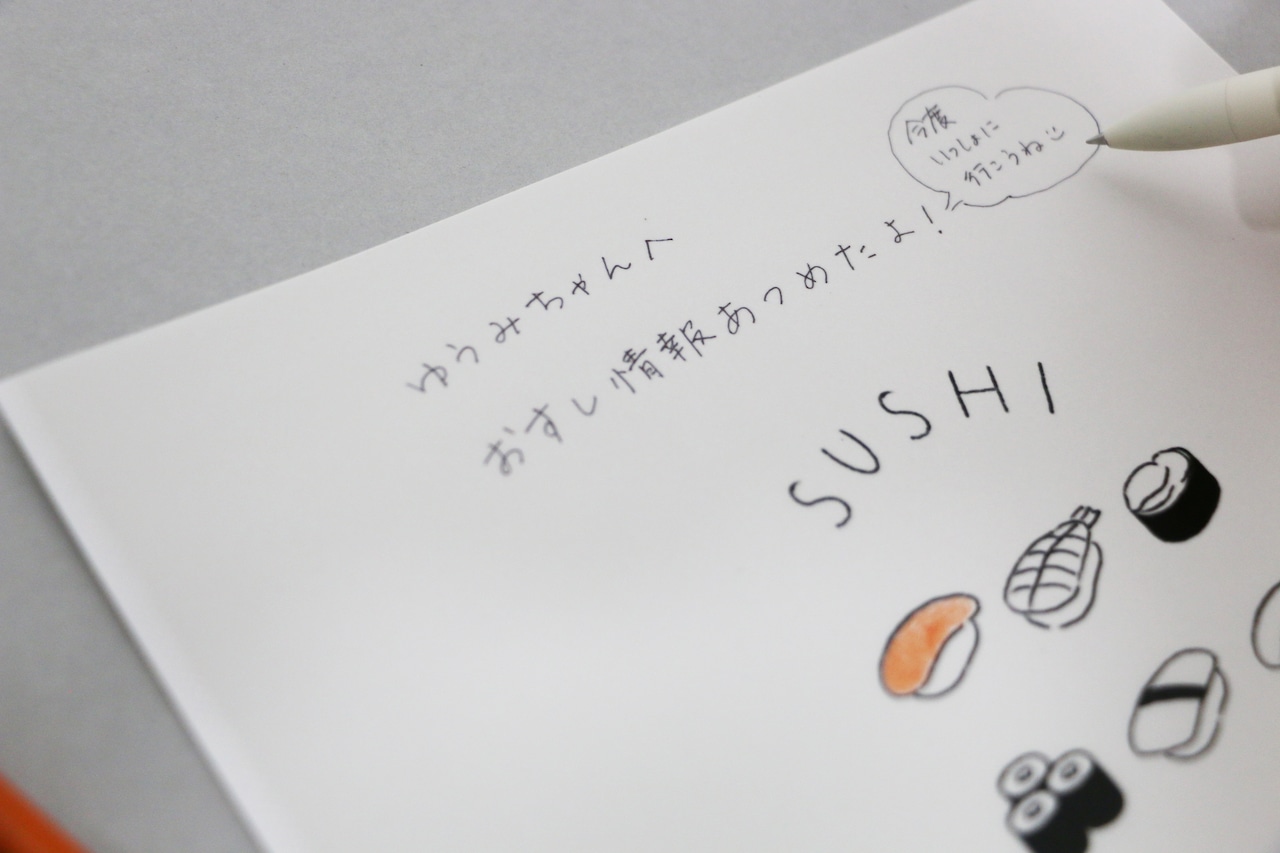 ゆうみちゃんへ
おすし情報あつめたよ！
今度
いっしょに
行こうね
SUSHI